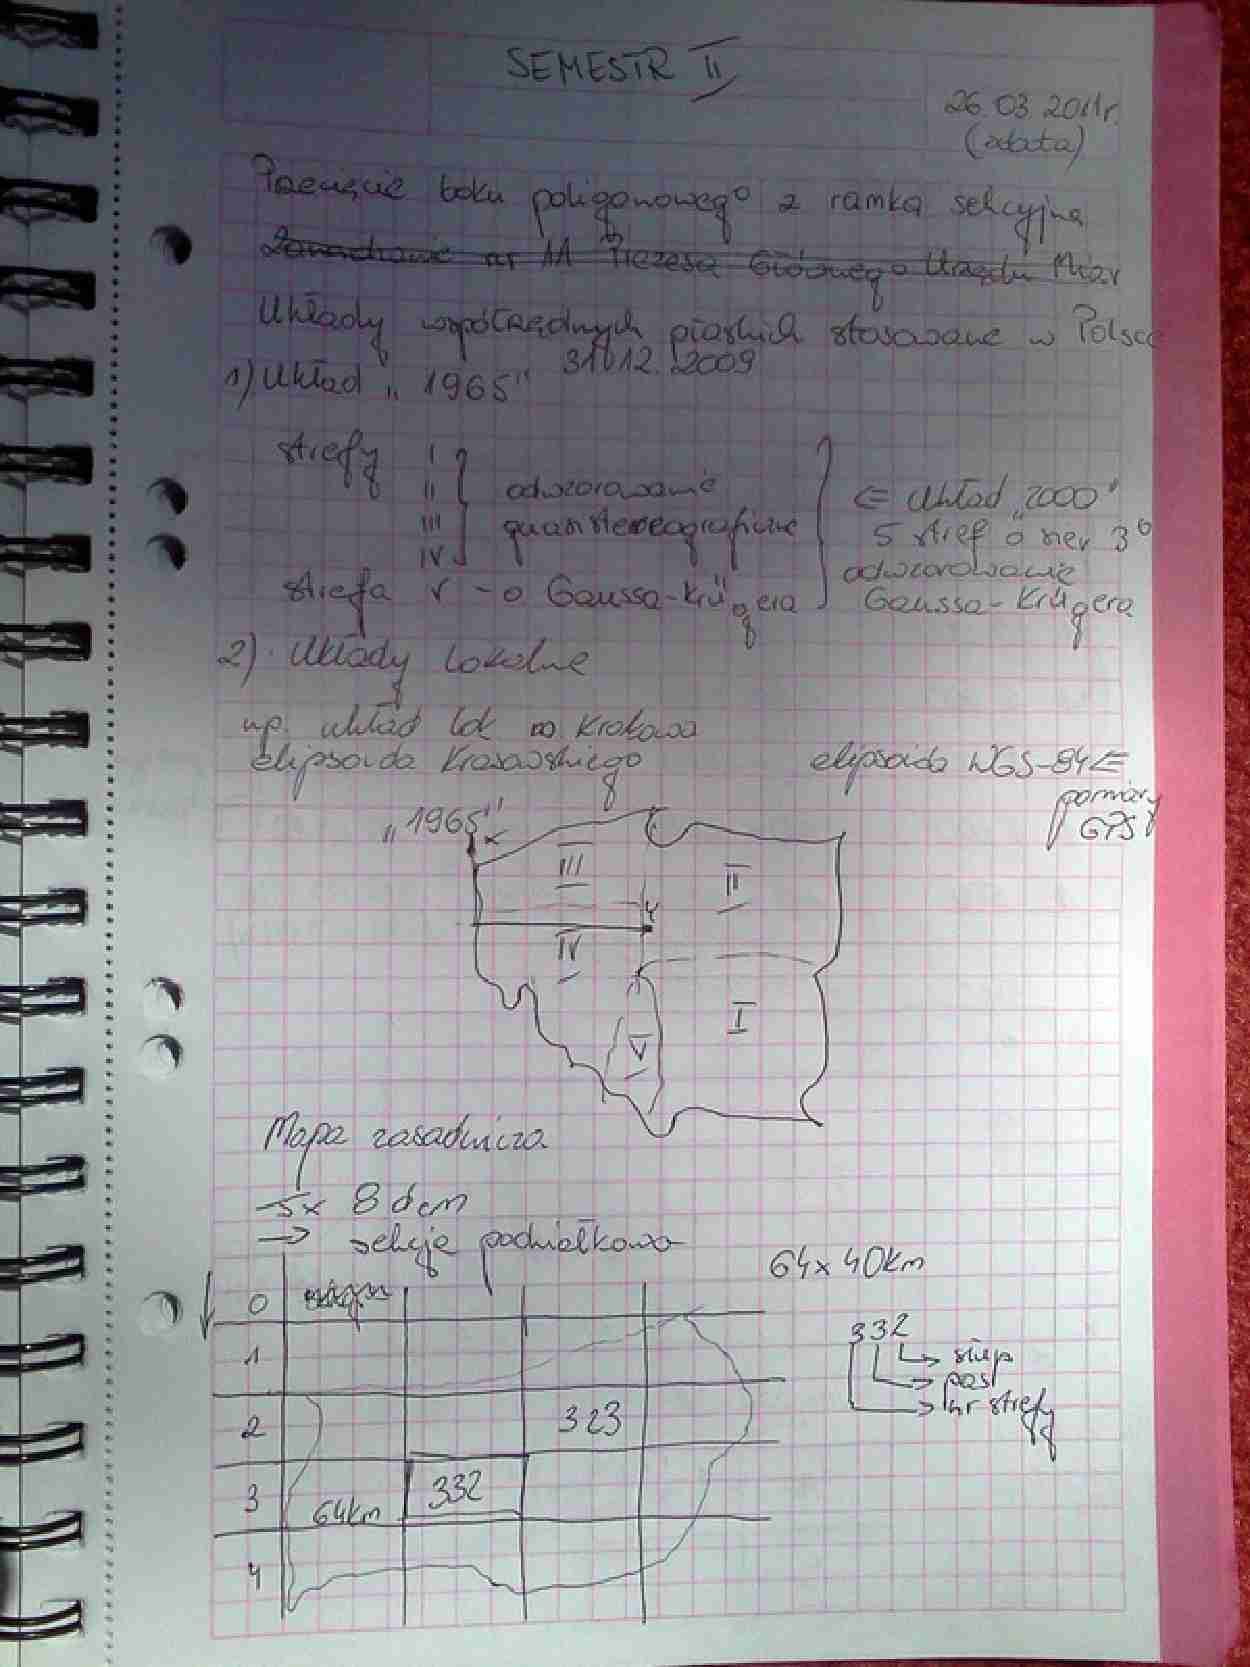 SEMESTR II
26.03.2011r.
(data)
Przecięcie boku poligonowego z ramką sekcyjną
nr 11 Prezesa Głównego Urzędu Miar
Układy współrzędnych płaskich stosowane w Polsce
1) Układ „1965" 31.12.2009
strefy I
II odwzorowanie
III quasistereograficzne
IV
strefa V - o Gaussa-Krügera
⇐ układ „2000"
5 stref o szer 3°
odwzorowanie
Gaussa-Krügera
2) Układy lokalne
np. układ lok m Krakowa
elipsoida Krasowskiego
elipsoida WGS-84 ⇐
pomiary
GPS
„1965"
x
III
II
y
IV
I
V
Mapa zasadnicza
5x 8 dcm
→ sekcje podziałkowa
64x40km
0
1
2 323
3 64km 332
4
332
słup
pas
nr strefy